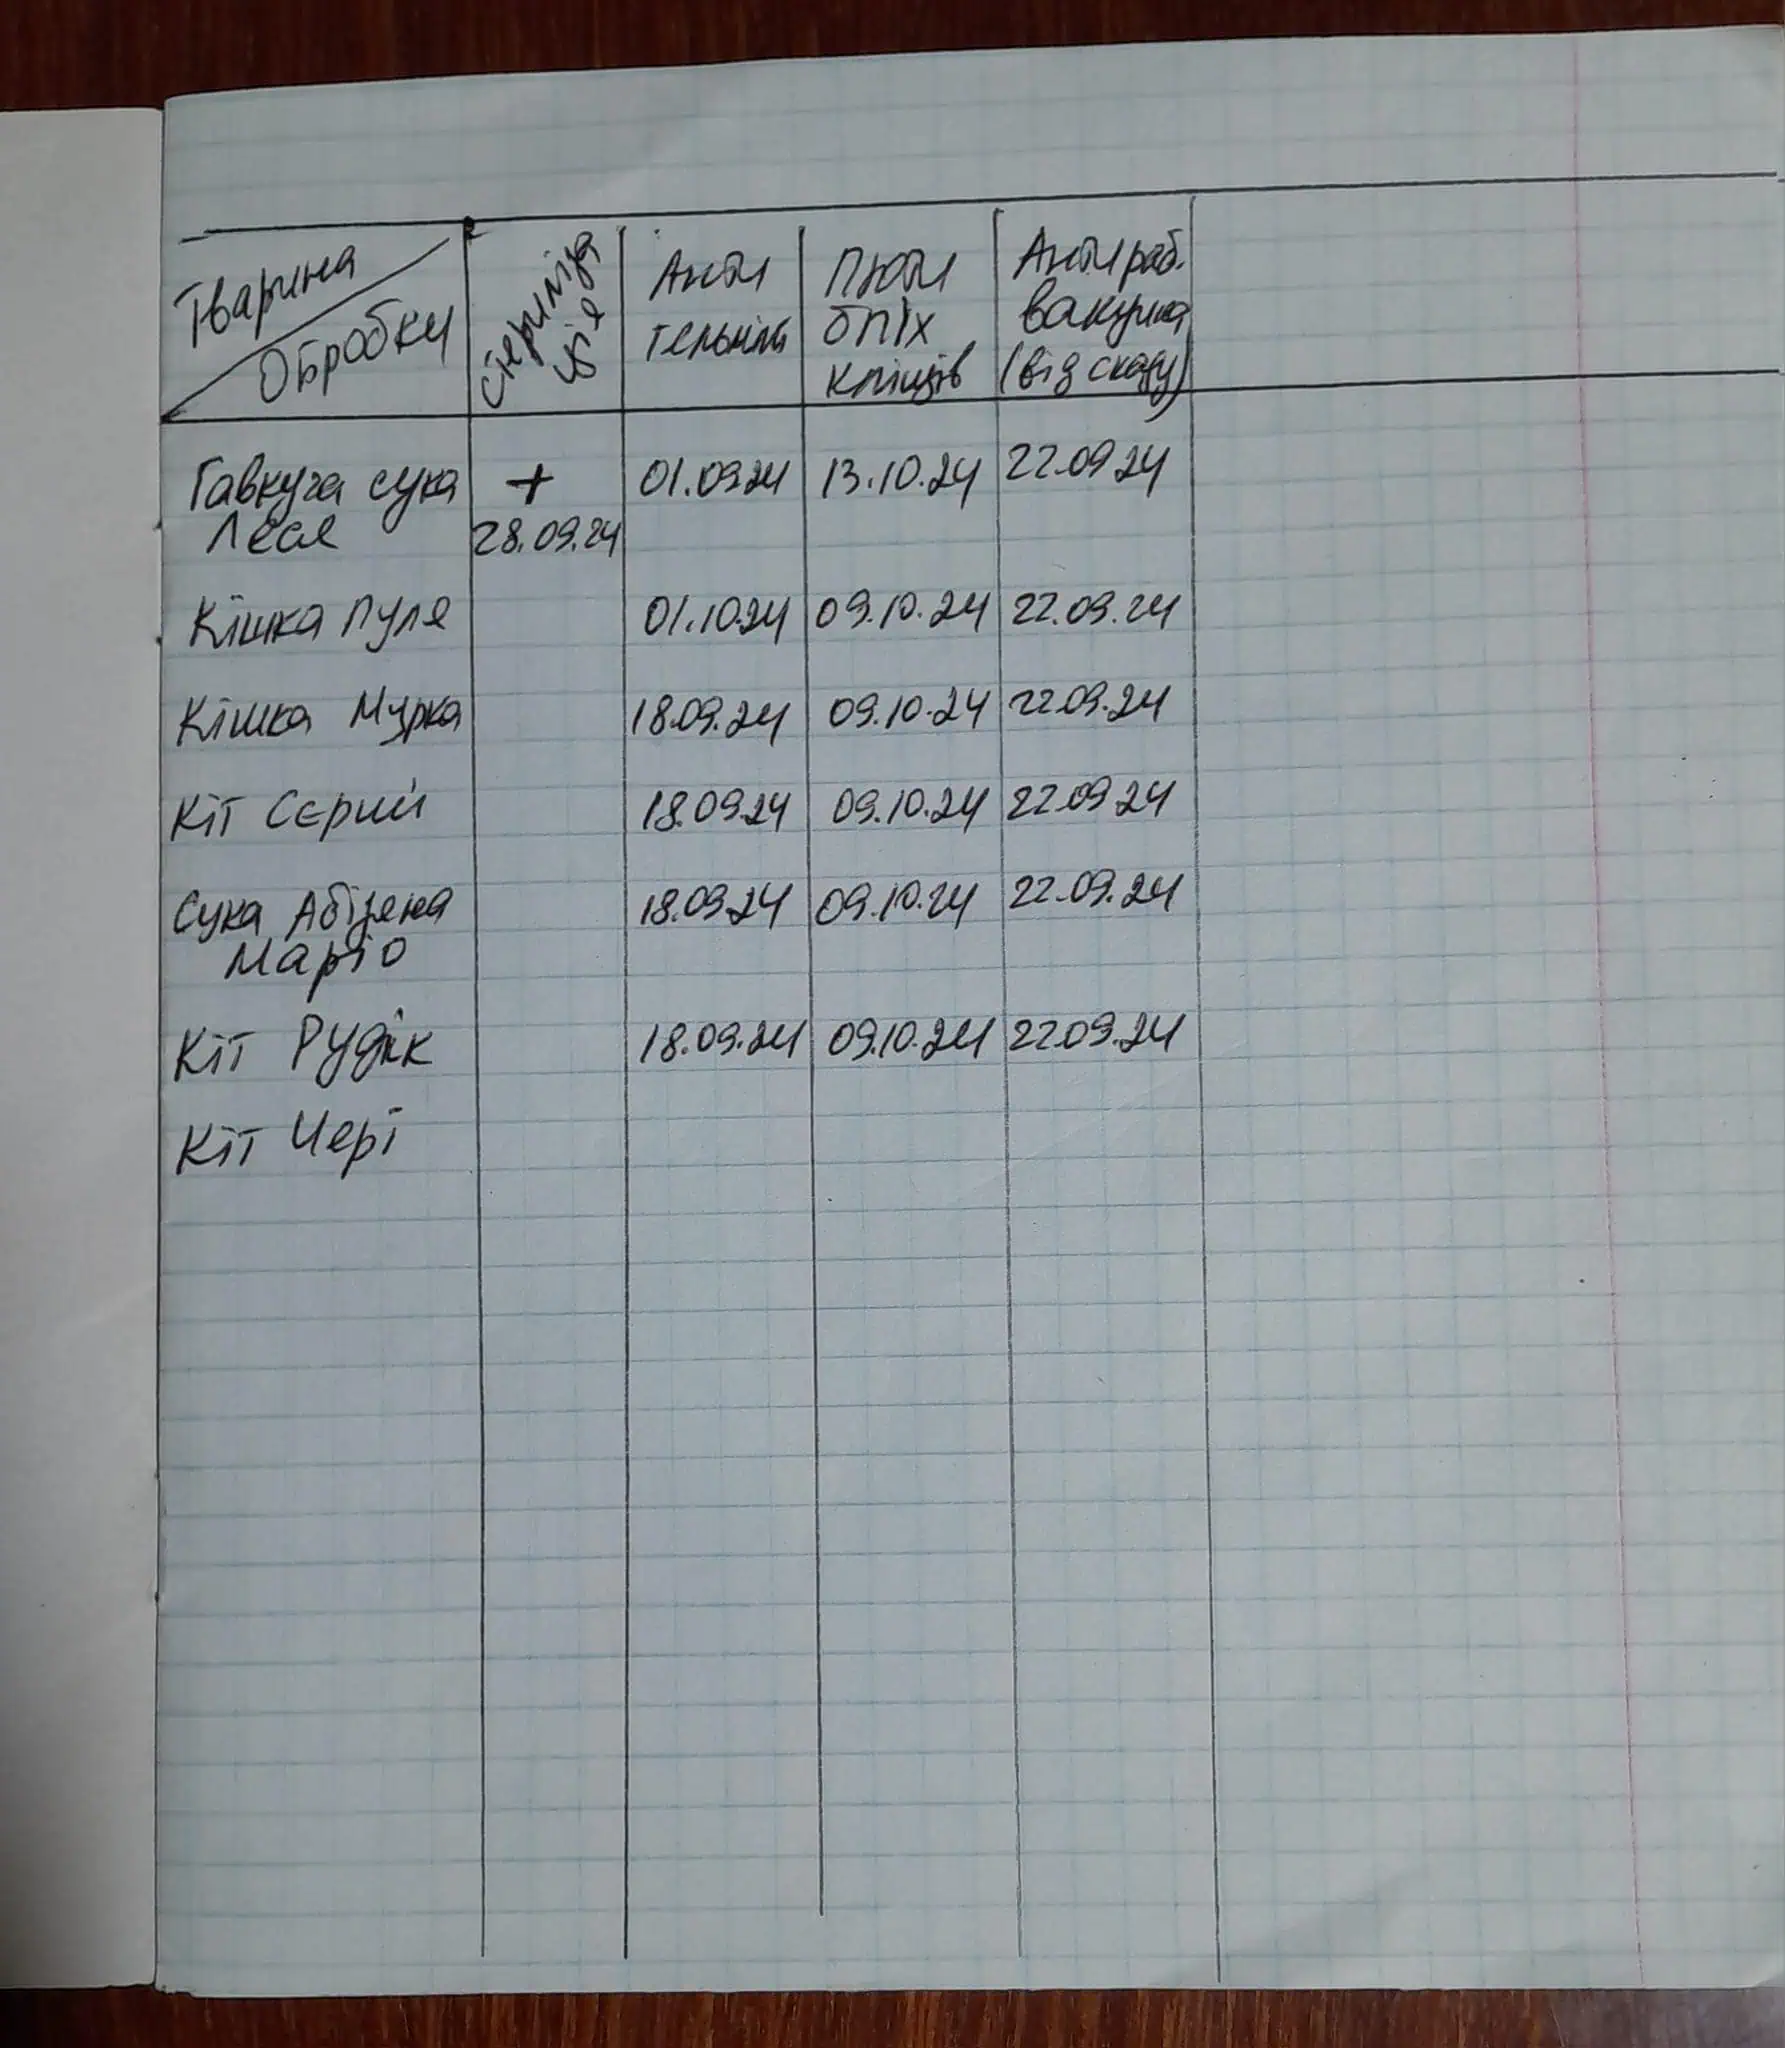 Тварина
Обробки
стериліза
ція
Анти
гельмінт
Проти
бліх
кліщів
Анти раб.
вакцина
(від сказу)
Гавкуча сука + 01.09.24 13.10.24 22.09.24
Леся 28.09.24
Кішка Пуля 01.10.24 09.10.24 22.09.24
Кішка Мурка 18.09.24 09.10.24 22.09.24
Кіт Сєрий 18.09.24 09.10.24 22.09.24
Сука Абізяна 18.09.24 09.10.24 22.09.24
Маріо
Кіт Рудік 18.09.24 09.10.24 22.09.24
Кіт Чері